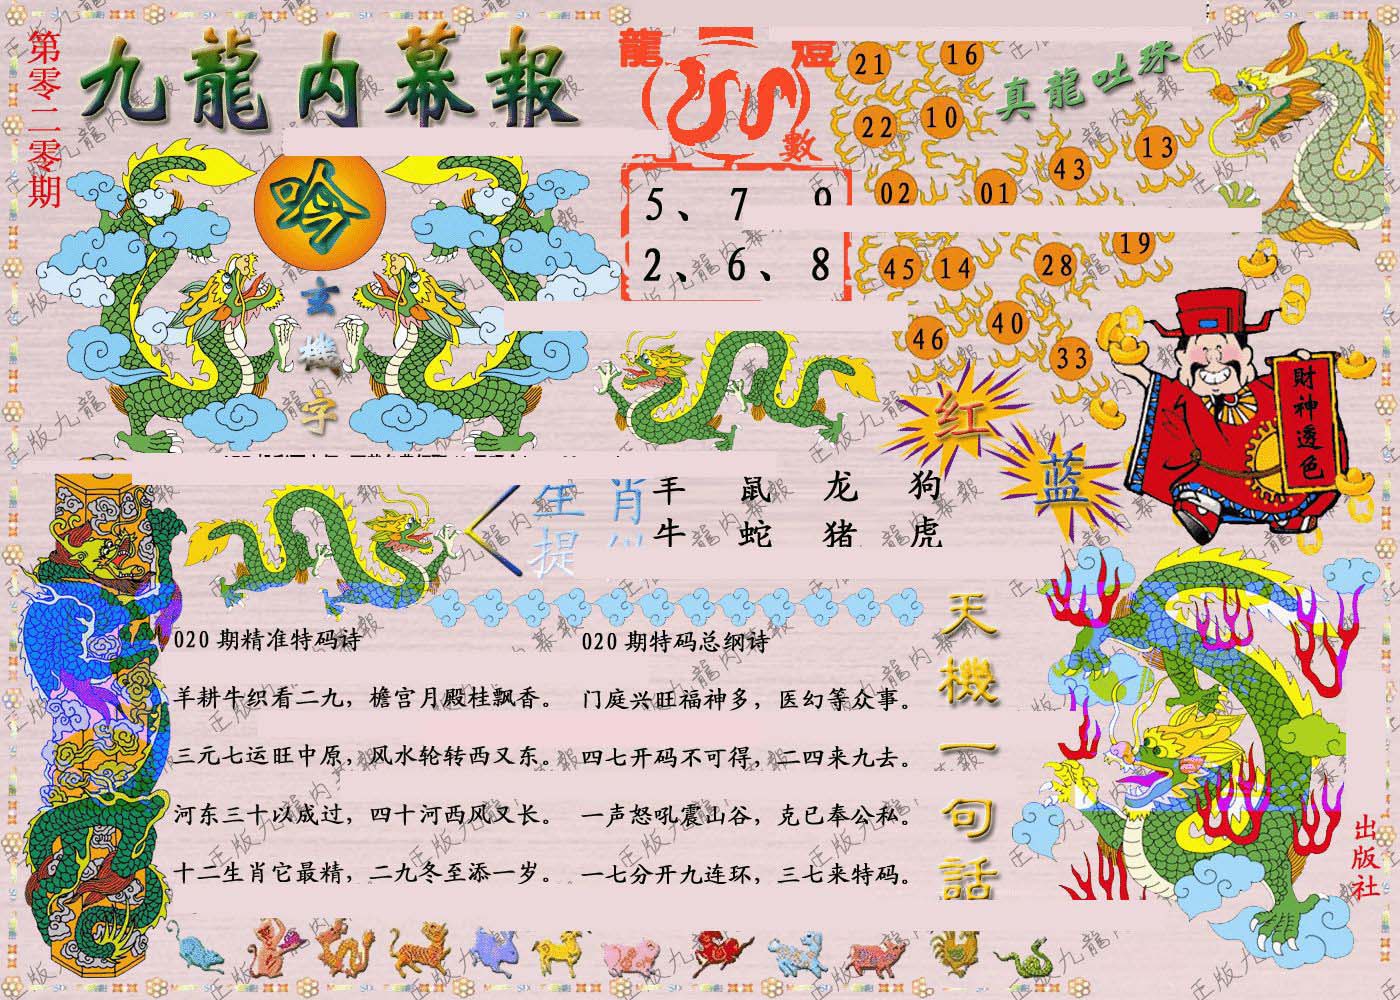 第零二零期
九龍内幕報
龍燈
數
5、7 9
2、6、8
吟
玄機字
21
16
22
10
真龍吐珠
43
13
02
01
45
14
28
19
46
40
33
财神透色
红
蓝
生肖
提
羊 鼠 龙 狗
牛 蛇 猪 虎
020 期精准特码诗
羊耕牛织看二九，檐宫月殿桂飘香。
三元七运旺中原，风水轮转西又东。
河东三十以成过，四十河西风又长。
十二生肖它最精，二九冬至添一岁。
020 期特码总纲诗
门庭兴旺福神多，医幻等众事。
四七开码不可得，二四来九去。
一声怒吼震山谷，克已奉公私。
一七分开九连环，三七来特码。
天機一句話
出版社
正版九龍内幕報